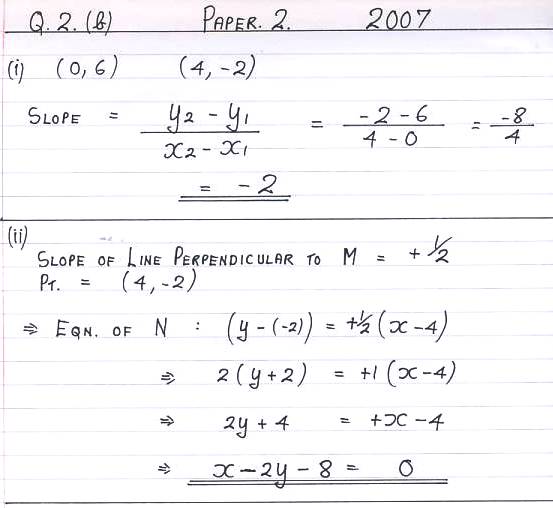 Q.2.(b) PAPER.2. 2007
(i) (0,6) (4,-2)
SLOPE = y2 - y1 / x2 - x1 = -2-6 / 4-0 = -8/4
= -2
(ii)
SLOPE OF LINE PERPENDICULAR TO M = +1/2
PT. = (4,-2)
⇒ EQN. OF N : (y-(-2)) = +1/2(x-4)
⇒ 2(y+2) = +1(x-4)
⇒ 2y+4 = +x-4
⇒ x-2y-8 = 0